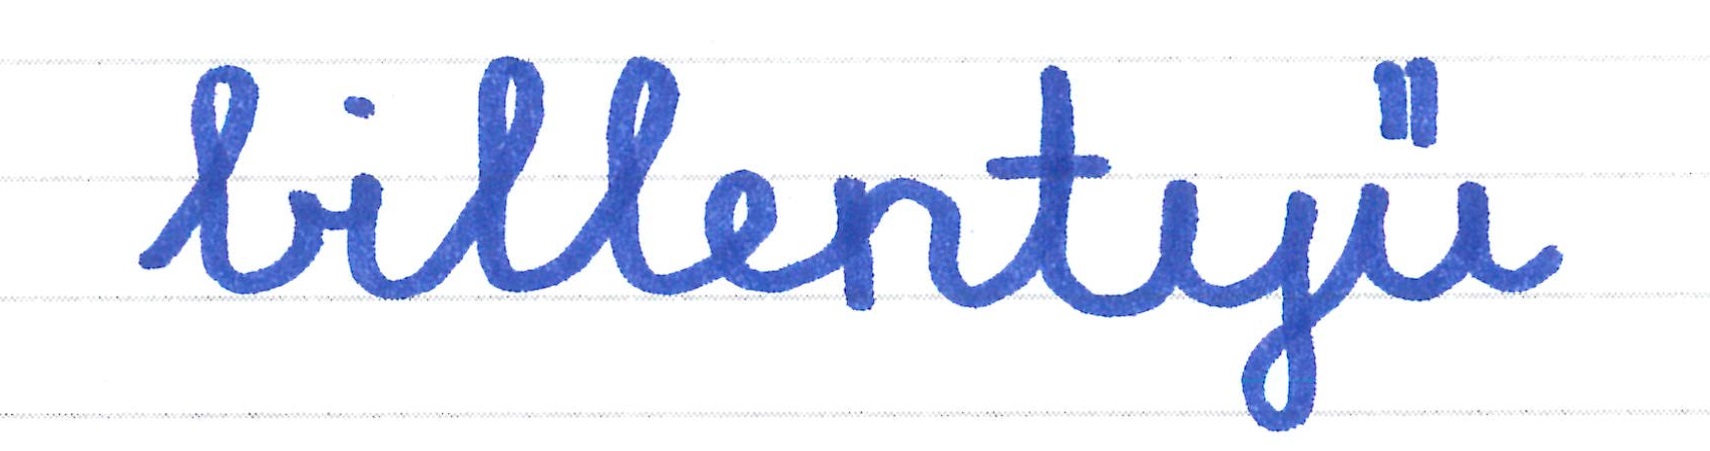 billentyű